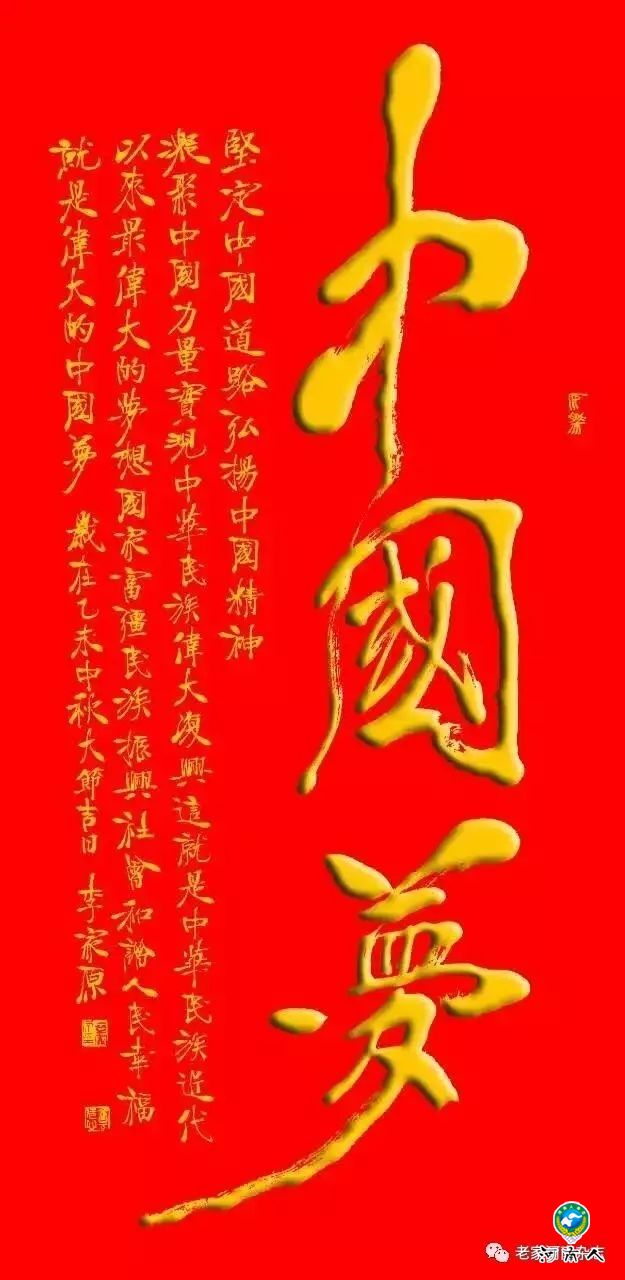 中國夢
堅定中國道路弘揚中國精神
凝聚中國力量實現中華民族偉大復興這就是中華民族近代
以來最偉大的夢想國家富彊民族振興社會和諧人民幸福
就是偉大的中國夢 歲在乙未中秋大節吉日 李家原
河南人